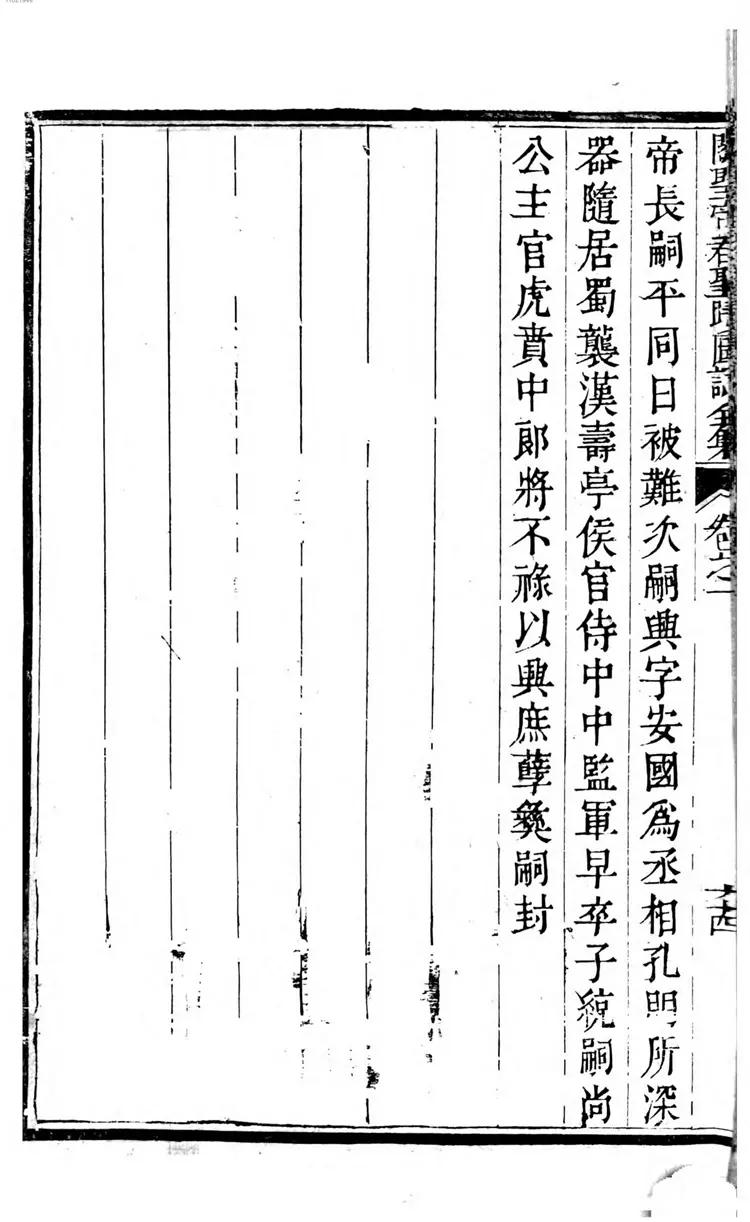 關聖帝君聖蹟圖誌全集 卷之一 六十四
帝長嗣平同日被難次嗣興字安國爲丞相孔明所深
器隨居蜀襲漢壽亭侯官侍中中監軍早卒子統嗣尚
公主官虎賁中郎將不祿以興庶孽彝嗣封